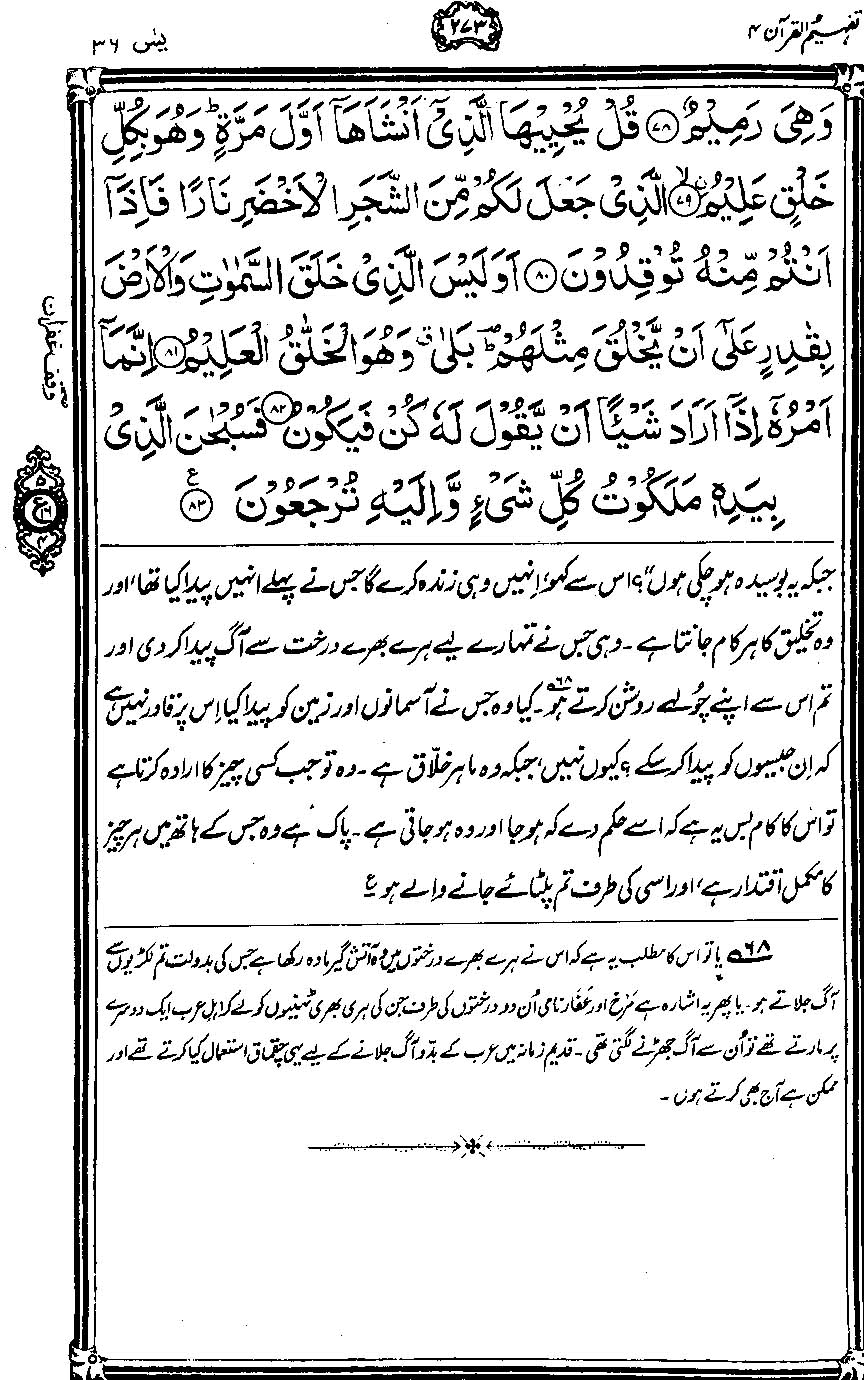 تفہیم القرآن ۴
۲۷۳
یٰس ۳۶
وَهِيَ رَمِيْمٌ ﴿۷۸﴾ قُلْ يُحْيِيْهَا الَّذِيْۤ اَنْشَاَهَاۤ اَوَّلَ مَرَّةٍ ؕ وَهُوَ بِكُلِّ
خَلْقٍ عَلِيْمُ ۨ ﴿۷۹﴾ۙ الَّذِيْ جَعَلَ لَكُمْ مِّنَ الشَّجَرِ الْاَخْضَرِ نَارًا فَاِذَاۤ
اَنْتُمْ مِّنْهُ تُوْقِدُوْنَ ﴿۸۰﴾ اَوَلَيْسَ الَّذِيْ خَلَقَ السَّمٰوٰتِ وَالْاَرْضَ
بِقٰدِرٍ عَلٰۤى اَنْ يَّخْلُقَ مِثْلَهُمْ ؕ بَلٰى ۗ وَهُوَ الْخَلّٰقُ الْعَلِيْمُ ﴿۸۱﴾ اِنَّمَاۤ
اَمْرُهٗۤ اِذَاۤ اَرَادَ شَيْـًٔا اَنْ يَّقُوْلَ لَهٗ كُنْ فَيَكُوْنُ ﴿۸۲﴾ فَسُبْحٰنَ الَّذِيْ
بِيَدِهٖ مَلَكُوْتُ كُلِّ شَيْءٍ وَّاِلَيْهِ تُرْجَعُوْنَ ﴿۸۳﴾ ع
وقف غفران
۵
ع
۱۶
۴
جبکہ یہ بوسیدہ ہو چکی ہوں"؟ اس سے کہو، اِنہیں وہی زندہ کرے گا جس نے پہلے انہیں پیدا کیا تھا، اور
وہ تخلیق کا ہر کام جانتا ہے۔ وہی جس نے تمہارے لیے ہرے بھرے درخت سے آگ پیدا کر دی اور
تم اس سے اپنے چُولہے روشن کرتے ہو۔۶۸ کیا وہ جس نے آسمانوں اور زمین کو پیدا کیا اِس پر قادر نہیں ہے
کہ اِن جیسوں کو پیدا کر سکے؟ کیوں نہیں، جبکہ وہ ماہر خلّاق ہے۔ وہ تو جب کسی چیز کا ارادہ کرتا ہے
تو اس کا کام بس یہ ہے کہ اسے حکم دے کہ ہو جا اور وہ ہو جاتی ہے۔ پاک ہے وہ جس کے ہاتھ میں ہر چیز
کا مکمل اقتدار ہے، اور اسی کی طرف تم پلٹائے جانے والے ہو ع
۶۸ یا تو اس کا مطلب یہ ہے کہ اس نے ہرے بھرے درختوں میں وہ آتش گیر مادہ رکھا ہے جس کی بدولت تم لکڑیوں سے
آگ جلاتے ہو۔ یا پھر یہ اشارہ ہے مَرْخ اور عَفَار نامی اُن دو درختوں کی طرف جن کی ہری بھری ٹہنیوں کو لے کر اہلِ عرب ایک دوسرے
پر مارتے تھے تو اُن سے آگ جھڑنے لگتی تھی۔ قدیم زمانہ میں عرب کے بدّو آگ جلانے کے لیے یہی چقماق استعمال کیا کرتے تھے اور
ممکن ہے آج بھی کرتے ہوں۔